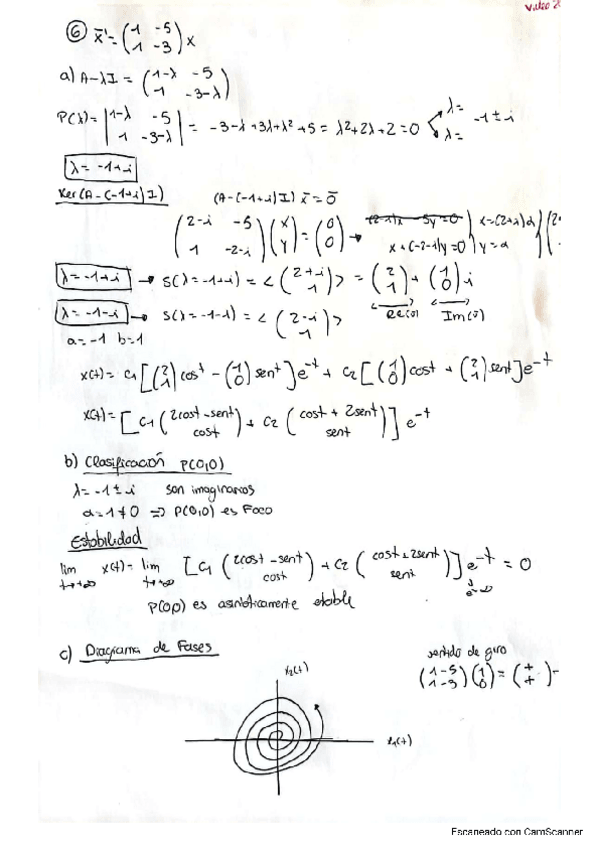 ⑥ x̄' = (1 -5 / 1 -3) x
a) A-λI = (1-λ -5 / 1 -3-λ)
P(λ) = |1-λ -5 / 1 -3-λ| = -3-λ+3λ+λ²+5 = λ²+2λ+2=0 λ= λ= -1±i
λ = -1+i
Ker(A-(-1+i)I) (A-(-1+i)I) x̄ = 0̄
(2-i -5 / 1 -2-i) (x / y) = (0 / 0) → (2-i)x - 5y=0 x+(-2-i)y=0 x=(2+i)α y=α
λ=-1+i → S(λ=-1+i) = < (2+i / 1) > = (2 / 1) + (1 / 0) i
λ=-1-i → S(λ=-1-i) = < (2-i / 1) > Re(v) Im(v)
a=-1 b=1
x(t) = C1 [ (2 / 1) cost - (1 / 0) sent ] e^-t + C2 [ (1 / 0) cost + (2 / 1) sent ] e^-t
x(t) = [ C1 (2cost-sent / cost) + C2 (cost + 2sent / sent) ] e^-t
b) Clasificación P(0,0)
λ = -1±i son imaginarios
a=1≠0 => P(0,0) es Foco
Estabilidad
lim t→+∞ x(t) = lim t→+∞ [ C1 (2cost-sent / cost) + C2 (cost+2sent / sent) ] e^-t = 0
e^-∞
P(0,0) es asintóticamente estable
c) Diagrama de Fases
sentido de giro
(1 -5 / 1 -3) (1 / 0) = (+ / +)
x2(t)
x1(t)
Escaneado con CamScanner